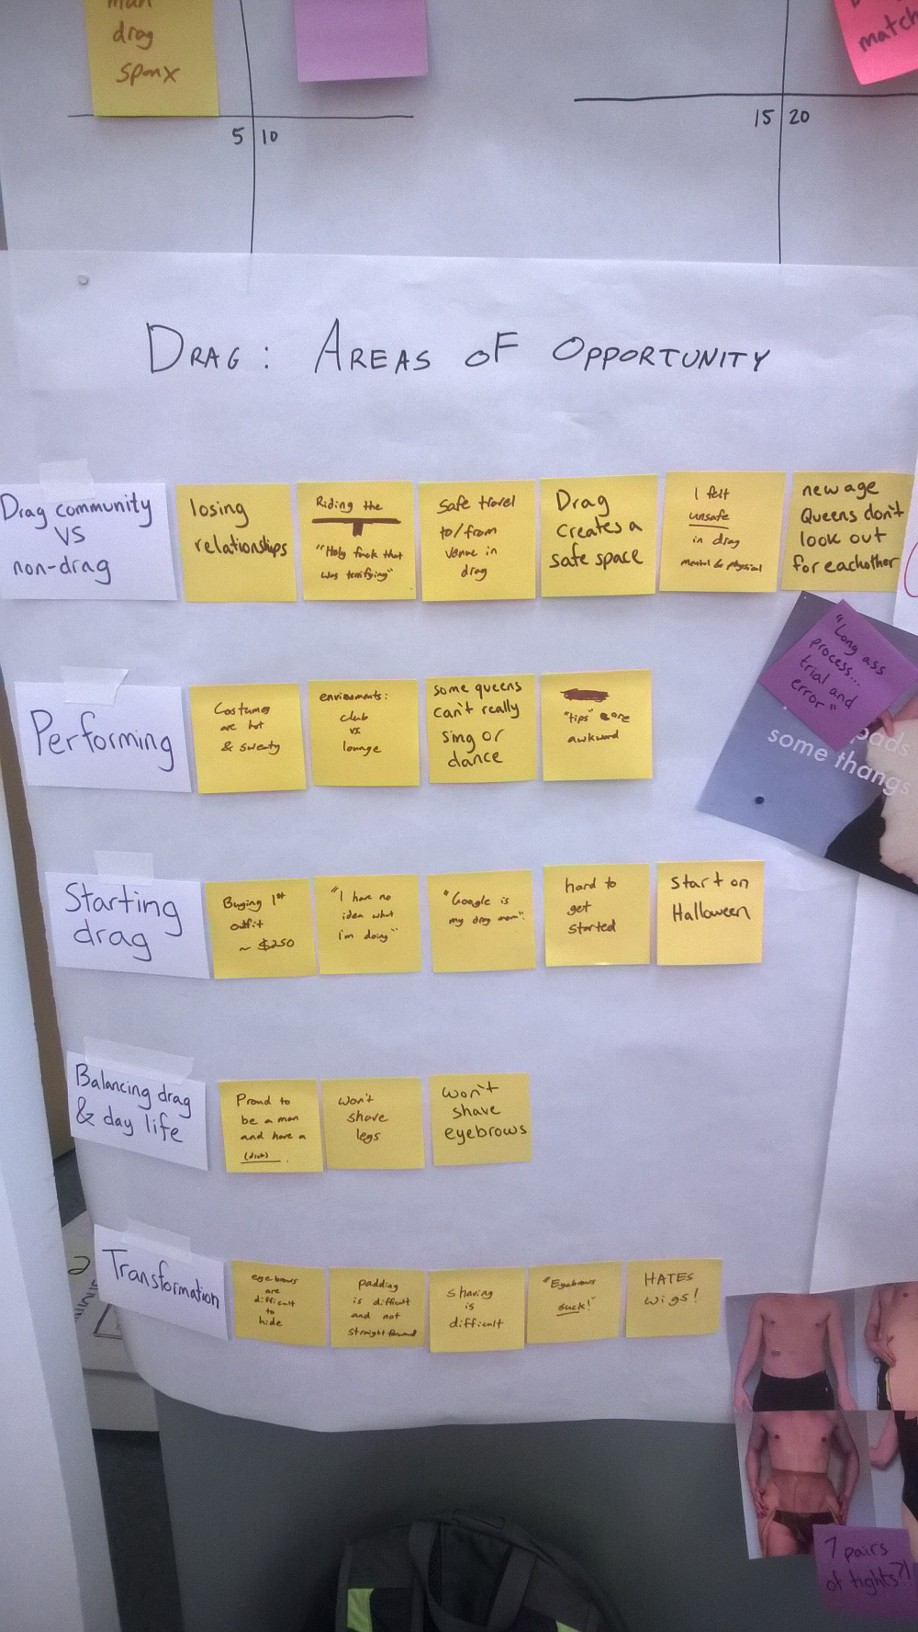 man
drag
spanx
match
5 10
15 20
DRAG: AREAS OF OPPORTUNITY
Drag community
VS
non-drag
losing
relationships
Riding the
T
"Holy fuck that
was terrifying"
Safe travel
to/from
venue in
drag
Drag
creates a
safe space
I felt
unsafe
in drag
mental & physical
new age
Queens don't
look out
for eachother
"Long ass
process...
trial and
error"
pads
some thangs
Performing
Costumes
are hot
& sweaty
enviroments:
club
vs
lounge
some queens
can't really
sing or
dance
"tips" are
awkward
Starting
drag
Buying 1st
outfit
~ $250
"I have no
idea what
i'm doing"
"Google is
my drag mom"
hard to
get
started
start on
Halloween
Balancing drag
& day life
Proud to
be a man
and have a
(dick).
won't
shave
legs
won't
shave
eyebrows
Transformation
eyebrows
are
difficult
to
hide
padding
is difficult
and not
straightforward
shaving
is
difficult
"Eyebrows
suck!"
HATES
wigs!
2
7 pairs
of tights?!